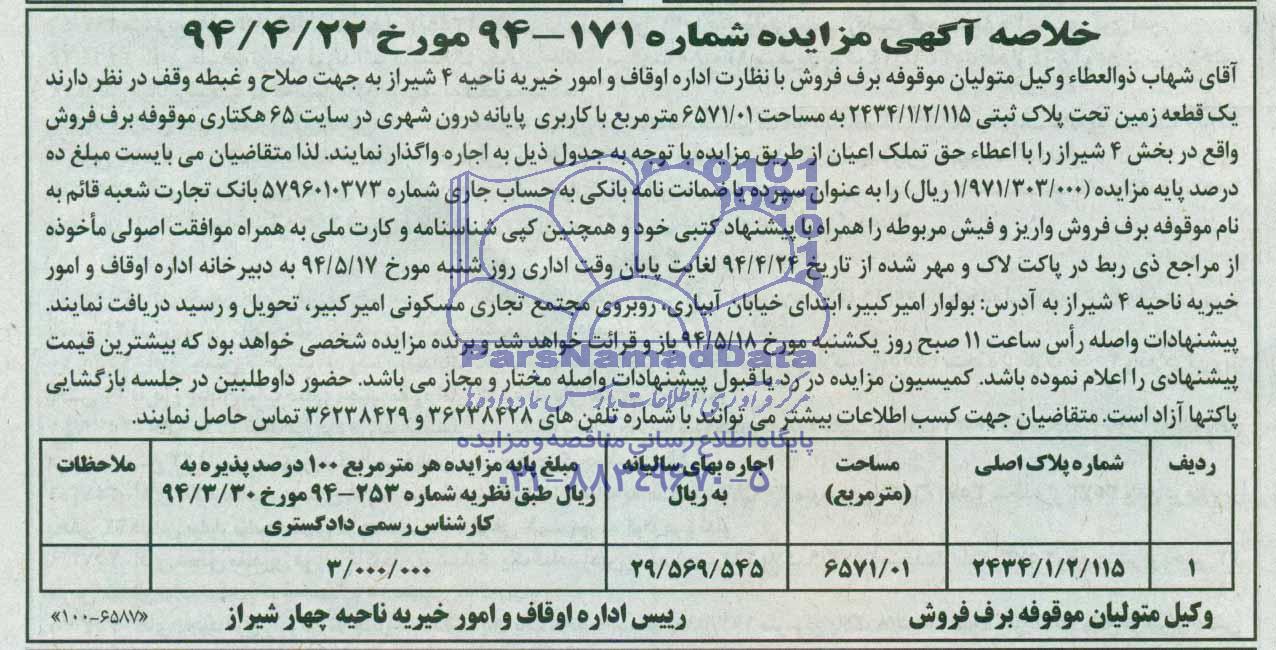 خلاصه آگهی مزایده شماره ۱۷۱-۹۴ مورخ ۹۴/۴/۲۲
آقای شهاب ذوالعطاء وکیل متولیان موقوفه برف فروش با نظارت اداره اوقاف و امور خیریه ناحیه ۴ شیراز به جهت صلاح و غبطه وقف در نظر دارند
یک قطعه زمین تحت پلاک ثبتی ۲۴۳۴/۱/۲/۱۱۵ به مساحت ۶۵۷۱/۰۱ مترمربع با کاربری پایانه درون شهری در سایت ۶۵ هکتاری موقوفه برف فروش
واقع در بخش ۴ شیراز را با اعطاء حق تملک اعیان از طریق مزایده با توجه به جدول ذیل به اجاره واگذار نمایند. لذا متقاضیان می بایست مبلغ ده
درصد پایه مزایده (۱/۹۷۱/۳۰۳/۰۰۰ ریال) را به عنوان سپرده یا ضمانت نامه بانکی به حساب جاری شماره ۵۷۹۶۰۱۰۳۷۳ بانک تجارت شعبه قائم به
نام موقوفه برف فروش واریز و فیش مربوطه را همراه با پیشنهاد کتبی خود و همچنین کپی شناسنامه و کارت ملی به همراه موافقت اصولی مأخوذه
از مراجع ذی ربط در پاکت لاک و مهر شده از تاریخ ۹۴/۴/۲۴ لغایت پایان وقت اداری روز شنبه مورخ ۹۴/۵/۱۷ به دبیرخانه اداره اوقاف و امور
خیریه ناحیه ۴ شیراز به آدرس: بولوار امیرکبیر، ابتدای خیابان آبیاری، روبروی مجتمع تجاری مسکونی امیرکبیر، تحویل و رسید دریافت نمایند.
پیشنهادات واصله رأس ساعت ۱۱ صبح روز یکشنبه مورخ ۹۴/۵/۱۸ باز و قرائت خواهد شد و برنده مزایده شخصی خواهد بود که بیشترین قیمت
پیشنهادی را اعلام نموده باشد. کمیسیون مزایده در رد یا قبول پیشنهادات واصله مختار و مجاز می باشد. حضور داوطلبین در جلسه بازگشایی
پاکتها آزاد است. متقاضیان جهت کسب اطلاعات بیشتر می توانند با شماره تلفن های ۳۶۲۳۸۴۲۸ و ۳۶۲۳۸۴۲۹ تماس حاصل نمایند.
ParsNamadData
مرکز فرآوری اطلاعات پارس نماد داده ها
پایگاه اطلاع رسانی مناقصه و مزایده
۰۲۱-۸۸۳۴۹۶۷۰-۵
ردیف شماره پلاک اصلی مساحت (مترمربع) اجاره بهای سالیانه به ریال مبلغ پایه مزایده هر مترمربع ۱۰۰ درصد پذیره به ریال طبق نظریه شماره ۲۵۳-۹۴ مورخ ۹۴/۳/۳۰ کارشناس رسمی دادگستری ملاحظات
۱ ۲۴۳۴/۱/۲/۱۱۵ ۶۵۷۱/۰۱ ۲۹/۵۶۹/۵۴۵ ۳/۰۰۰/۰۰۰
وکیل متولیان موقوفه برف فروش رییس اداره اوقاف و امور خیریه ناحیه چهار شیراز «۱۰۰-۶۵۸۷»